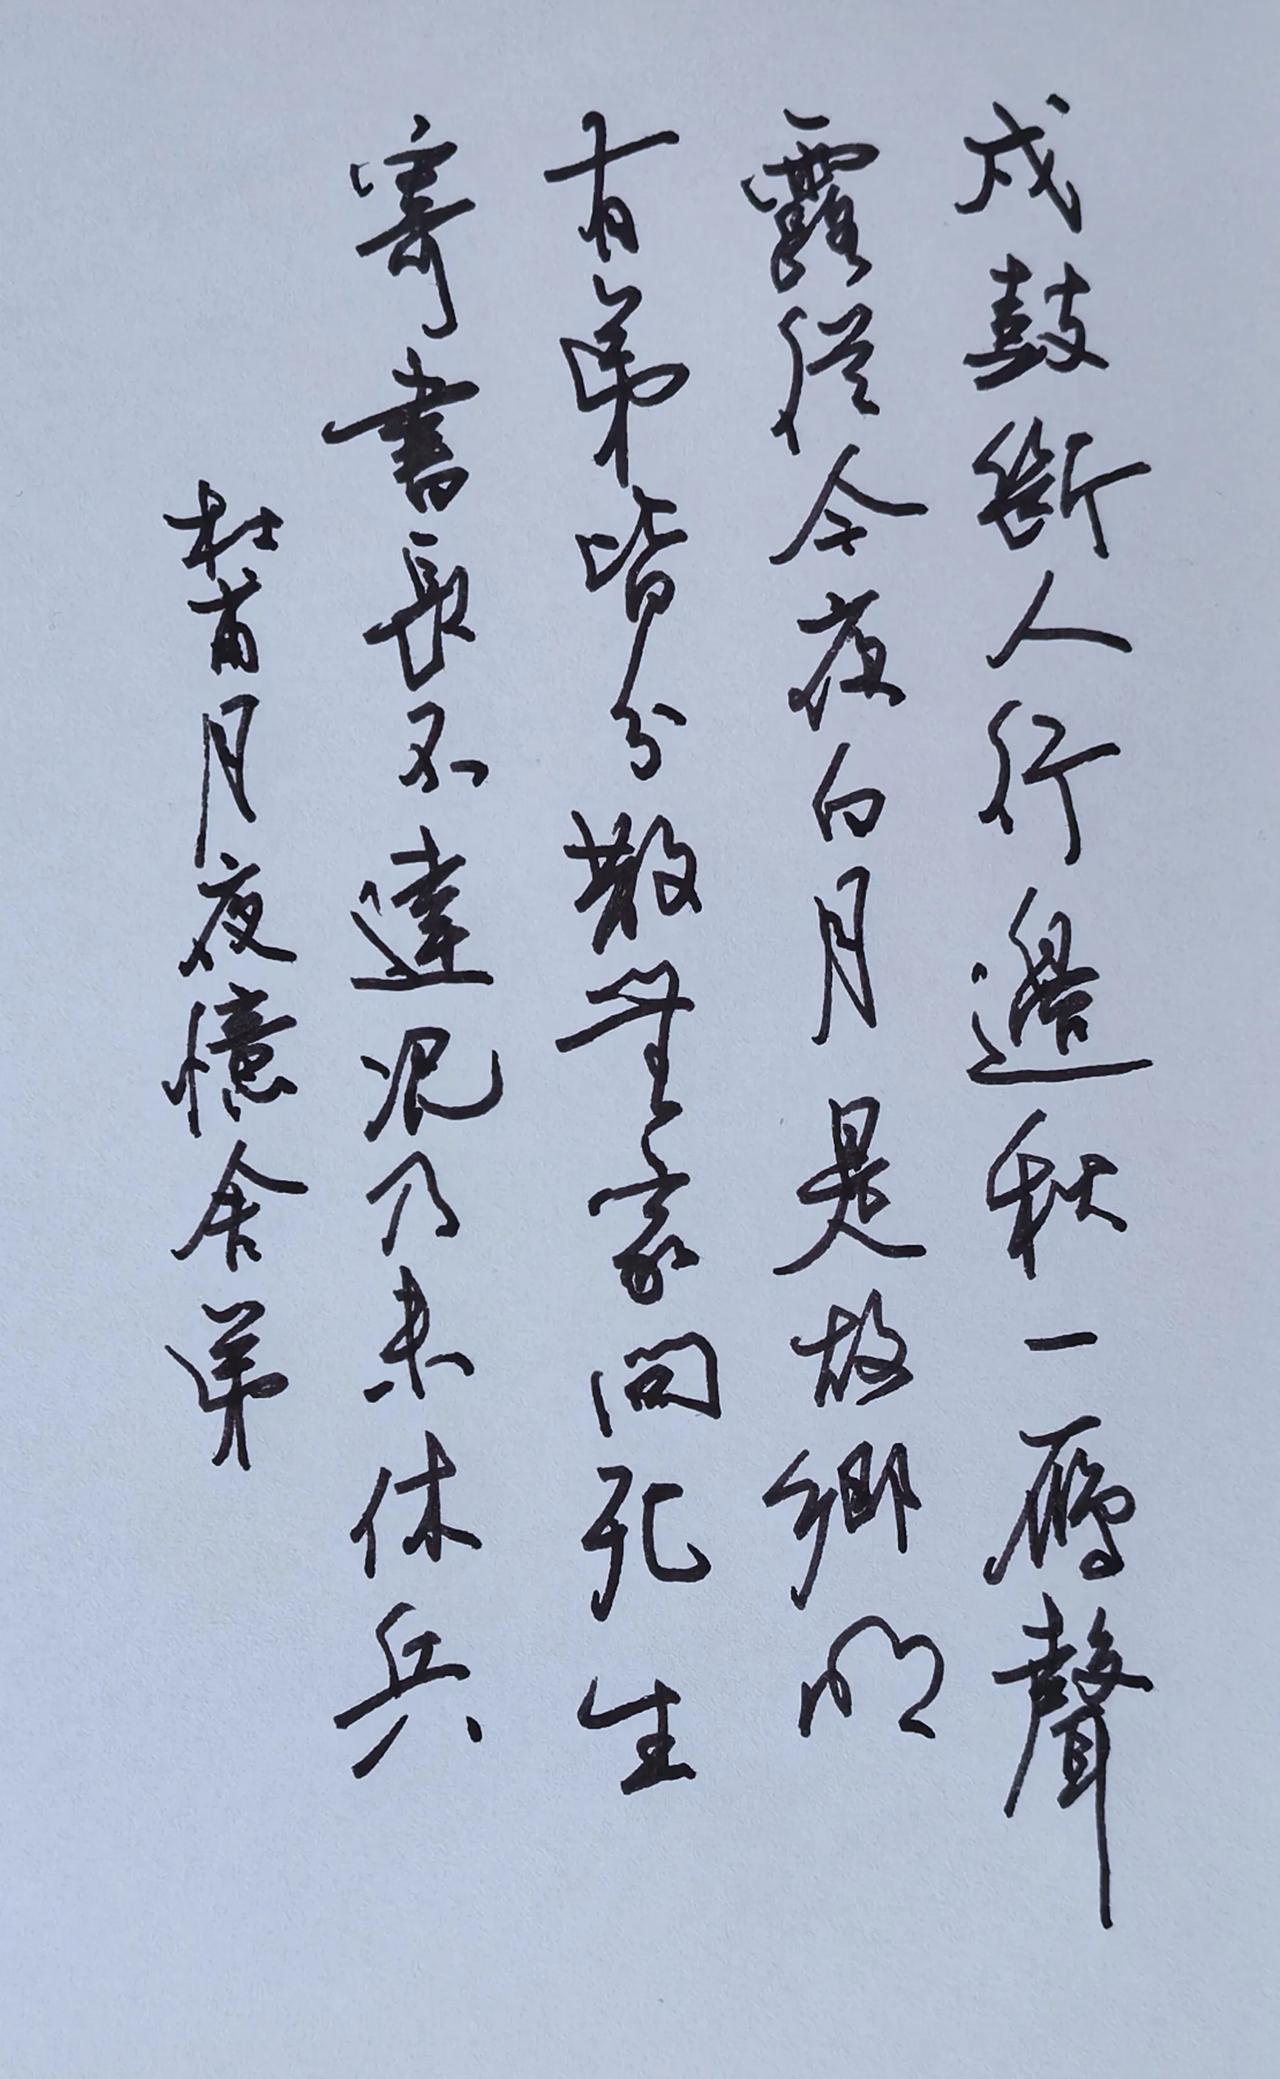 戍鼓斷人行邊秋一雁聲
露從今夜白月是故鄉明
有弟皆分散無家問死生
寄書長不達况乃未休兵
杜甫月夜憶舍弟